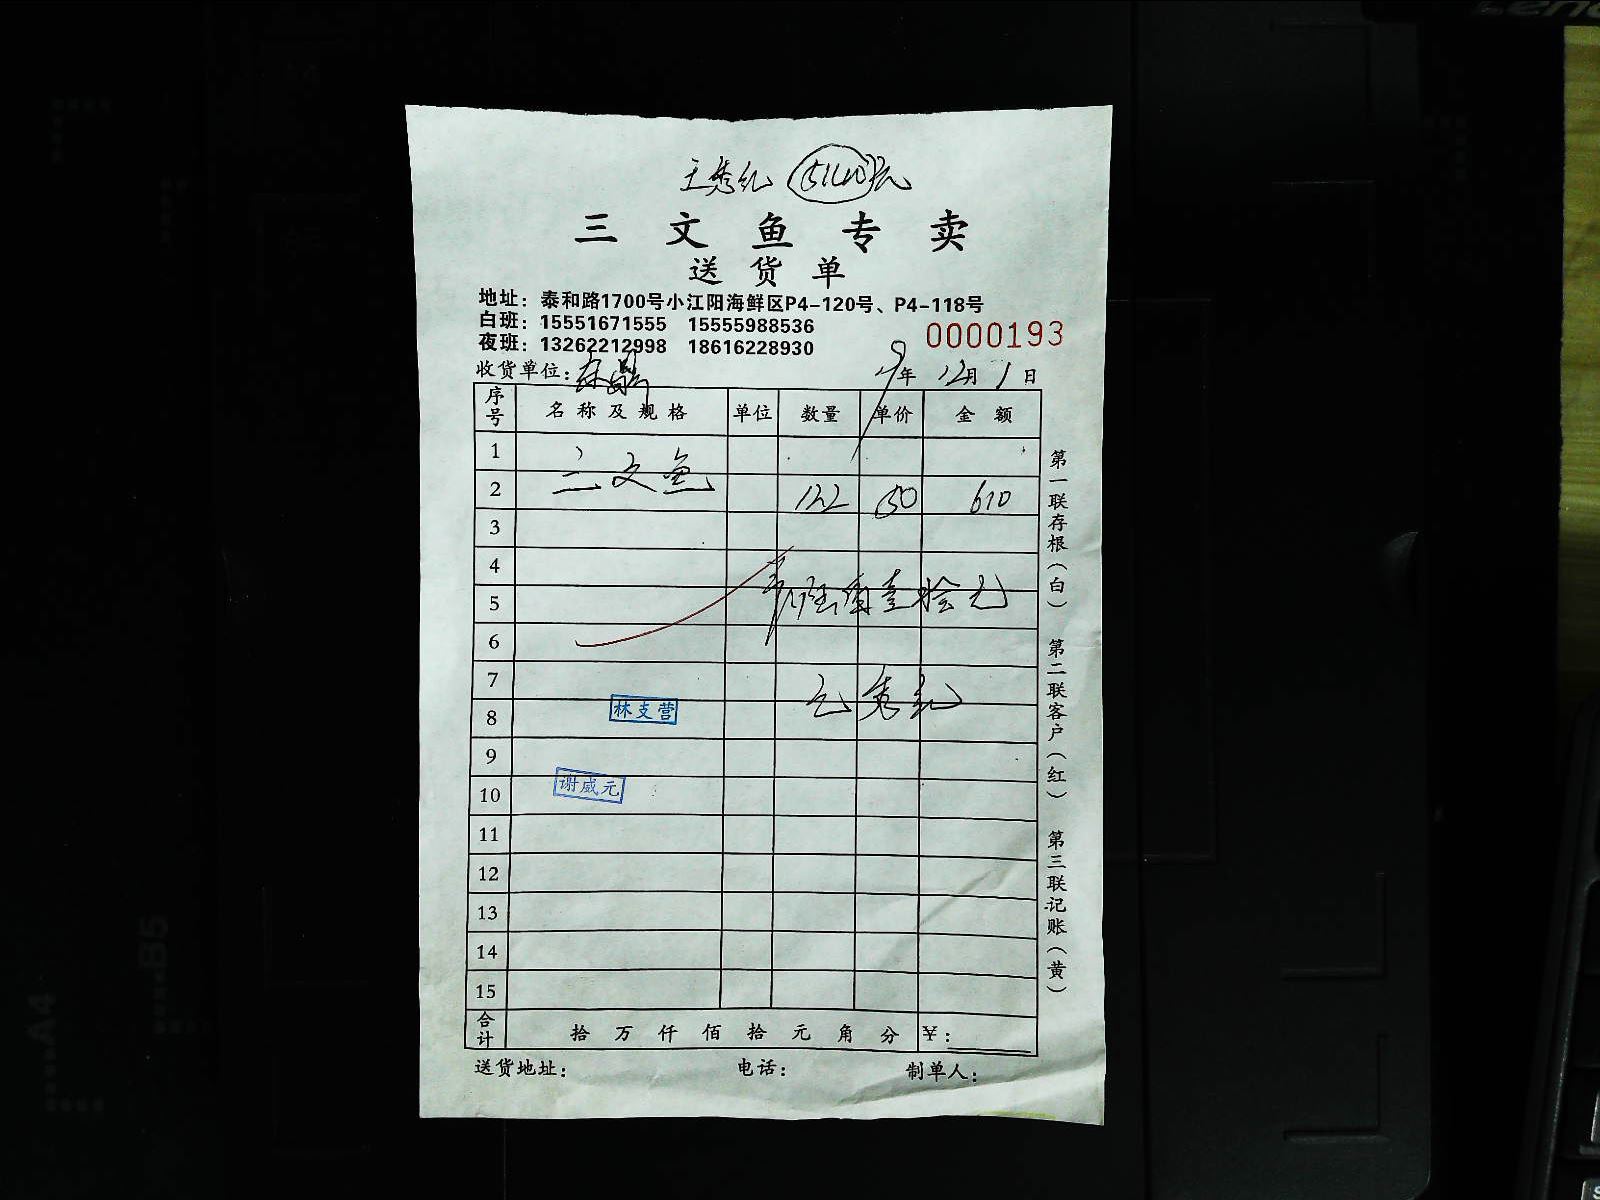 王秀纪
三文鱼专卖
送货单
地址：泰和路1700号小江阳海鲜区P4-120号、P4-118号
白班：15551671555 15555988536
夜班：13262212998 18616228930
0000193
收货单位： 年 12月 1日
序号 名称及规格 单位 数量 单价 金额
1
三文鱼
2 122 50 610
3
4
5 陆佰壹拾元
6
7 王秀纪
8 林支营
9
10 谢威元
11
12
13
14
15
合计 拾 万 仟 佰 拾 元 角 分 ¥：
送货地址： 电话： 制单人：
第一联存根（白） 第二联客户（红） 第三联记账（黄）